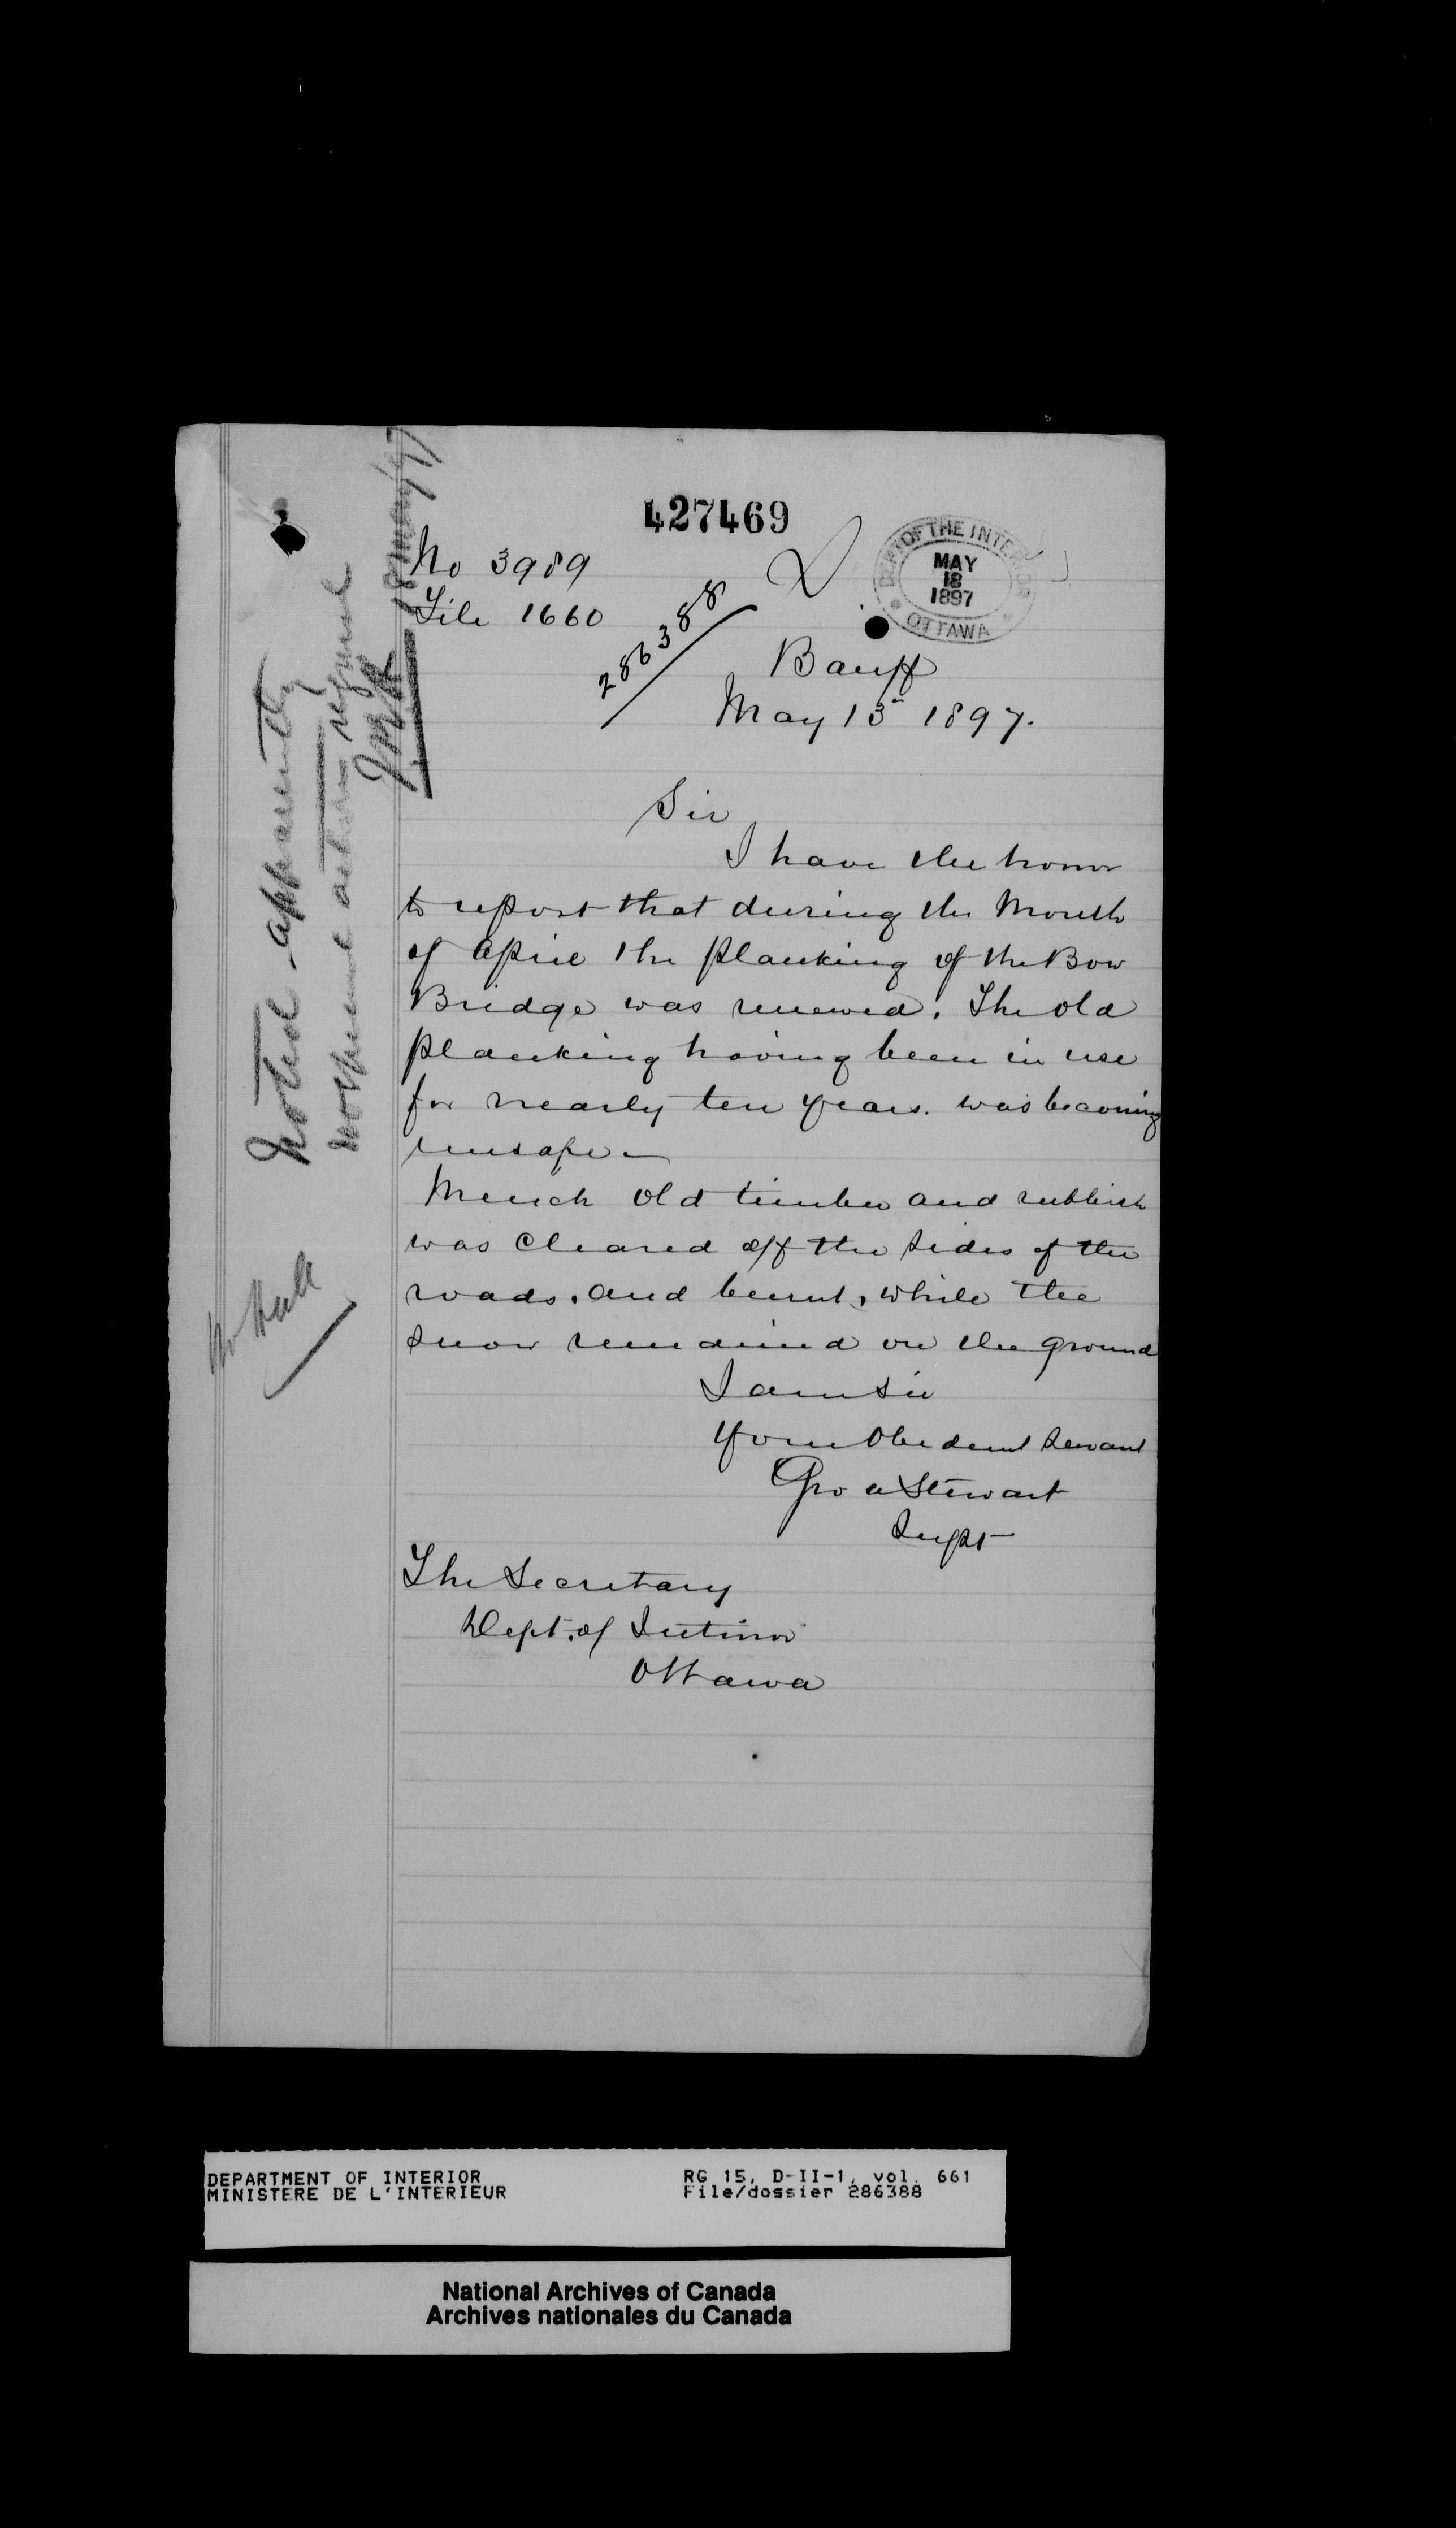 427469
No 3989
File 1660
286388
DEPT OF THE INTERIOR
MAY
18
1897
OTTAWA
Banff
May 13 1897.
Sir
I have the honor
to report that during the Month
of April the planking of the Bow
Bridge was renewed. The old
planking having been in use
for nearly ten years. was becoming
unsafe
Much old timber and rubbish
was cleared off the sides of the
roads. and burnt, while the
snow remained on the ground
I am Sir
Your Obedient Servant
Geo a Stewart
Supt
The Secretary
Dept. of Interior
Ottawa
Noted apparently
no further action required
18 May/97
DEPARTMENT OF INTERIOR
MINISTERE DE L'INTERIEUR
RG 15, D-II-1, vol. 661
File/dossier 286388
National Archives of Canada
Archives nationales du Canada